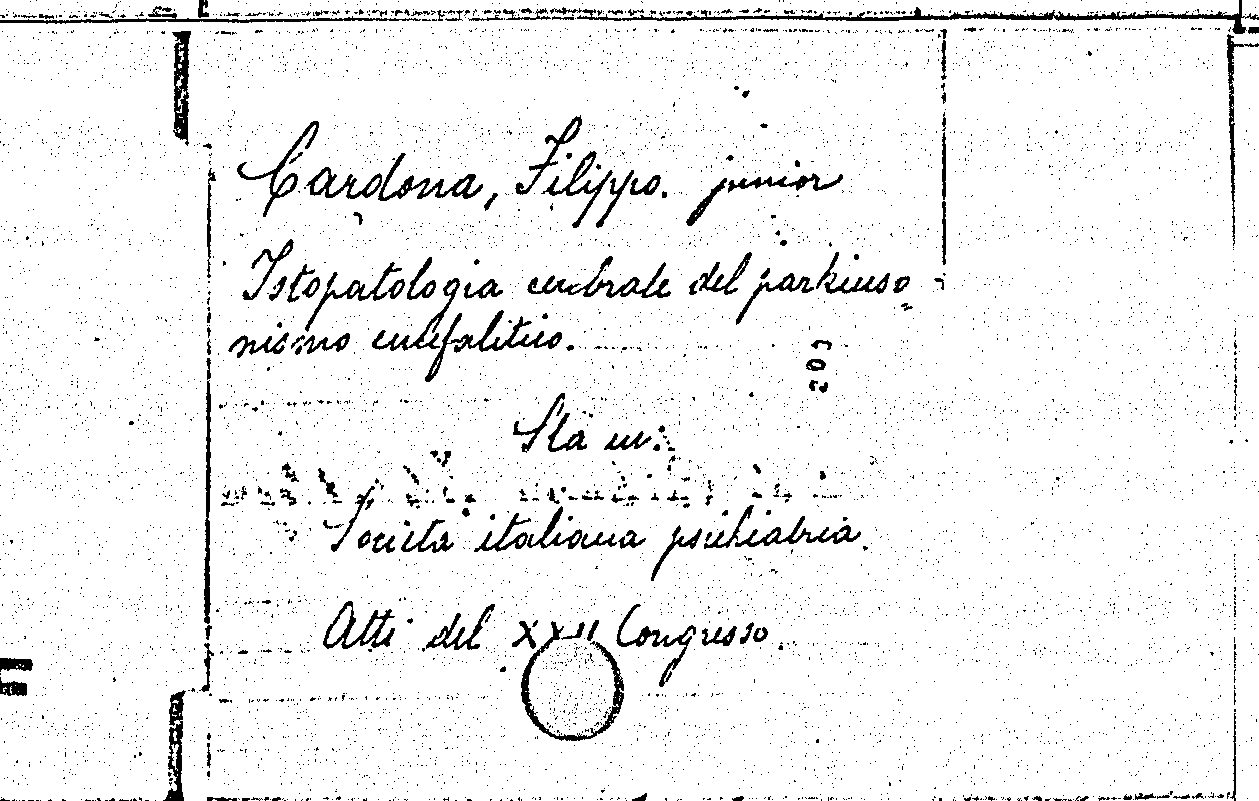 Cardona, Filippo. junior
Istopatologia cerebrale del parkinso=
nismo encefalitico.
203
Sta in:
Società italiana psichiatria.
Atti del XXII Congresso.